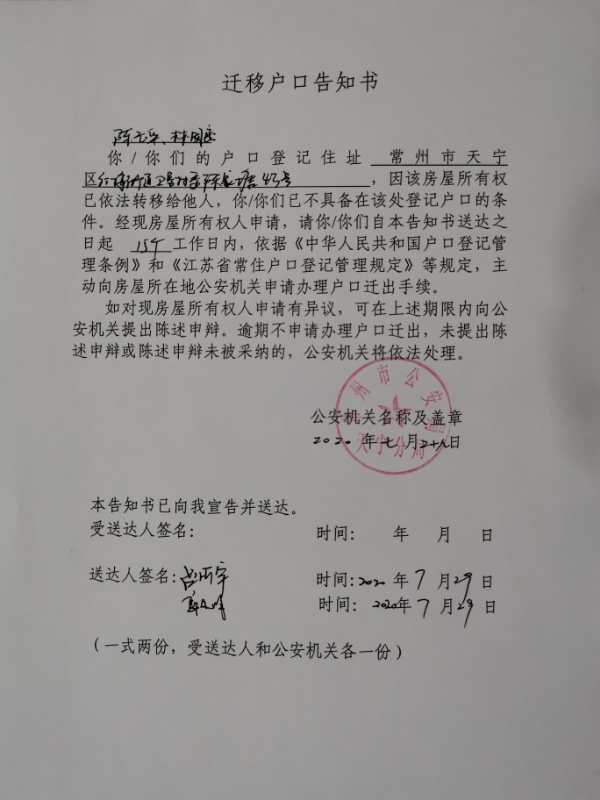 迁移户口告知书
你/你们的户口登记住址 常州市天宁
区 43号 ,因该房屋所有权
已依法转移给他人,你/你们已不具备在该处登记户口的条
件。经现房屋所有权人申请,请你/你们自本告知书送达之
日起 15个 工作日内,依据《中华人民共和国户口登记管
理条例》和《江苏省常住户口登记管理规定》等规定,主
动向房屋所在地公安机关申请办理户口迁出手续。
如对现房屋所有权人申请有异议,可在上述期限内向公
安机关提出陈述申辩。逾期不申请办理户口迁出,未提出陈
述申辩或陈述申辩未被采纳的,公安机关将依法处理。
州市公安局
天宁分局
公安机关名称及盖章
2020 年 七 月 二十九 日
本告知书已向我宣告并送达。
受送达人签名: 时间: 年 月 日
送达人签名: 时间:2020 年 7 月 29 日
时间: 2020年 7 月 29 日
(一式两份,受送达人和公安机关各一份)